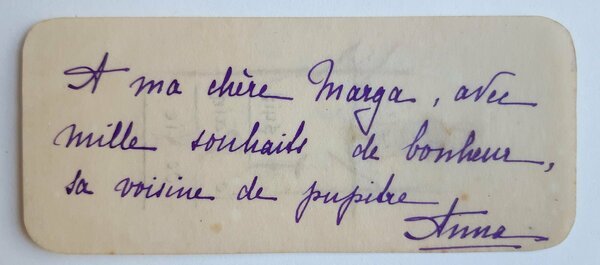 A ma chère Marga, avec
mille souhaits de bonheur,
sa voisine de pupitre
Anna